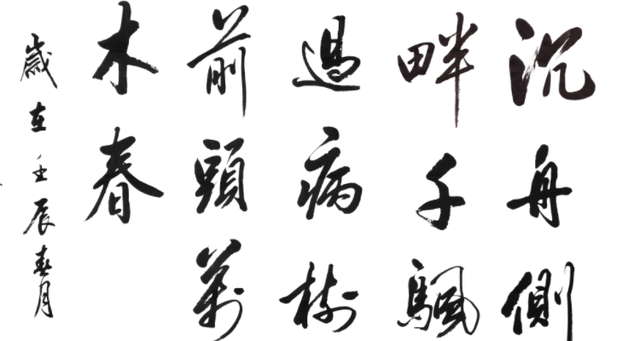 沉舟側
畔千颿
過病樹
前頭萬
木春
歲在壬辰春月